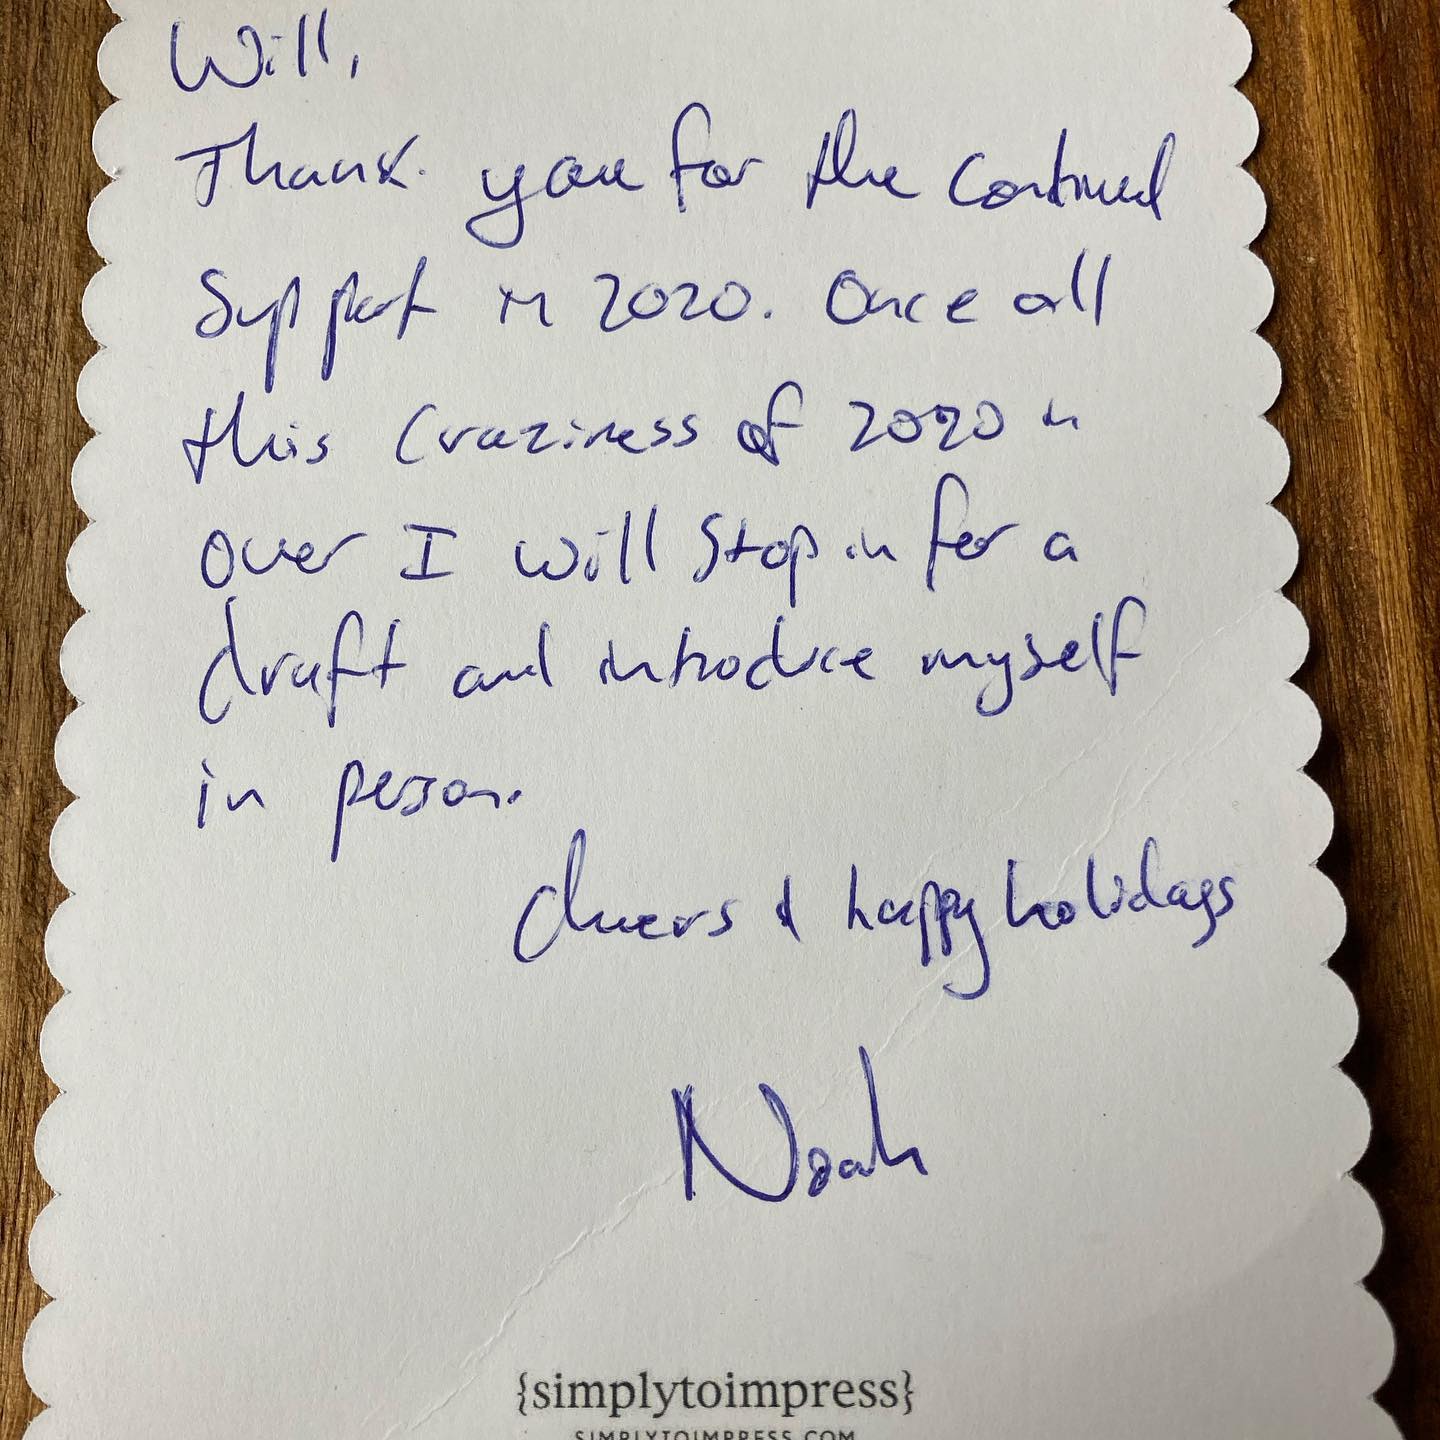 Will,
Thank you for the Continued
Support in 2020. Once all
this Craziness of 2020 is
over I will Stop in for a
draft and introduce myself
in person.
Cheers & happy holidays
Noah
{simplytoimpress}
SIMPLYTOIMPRESS.COM